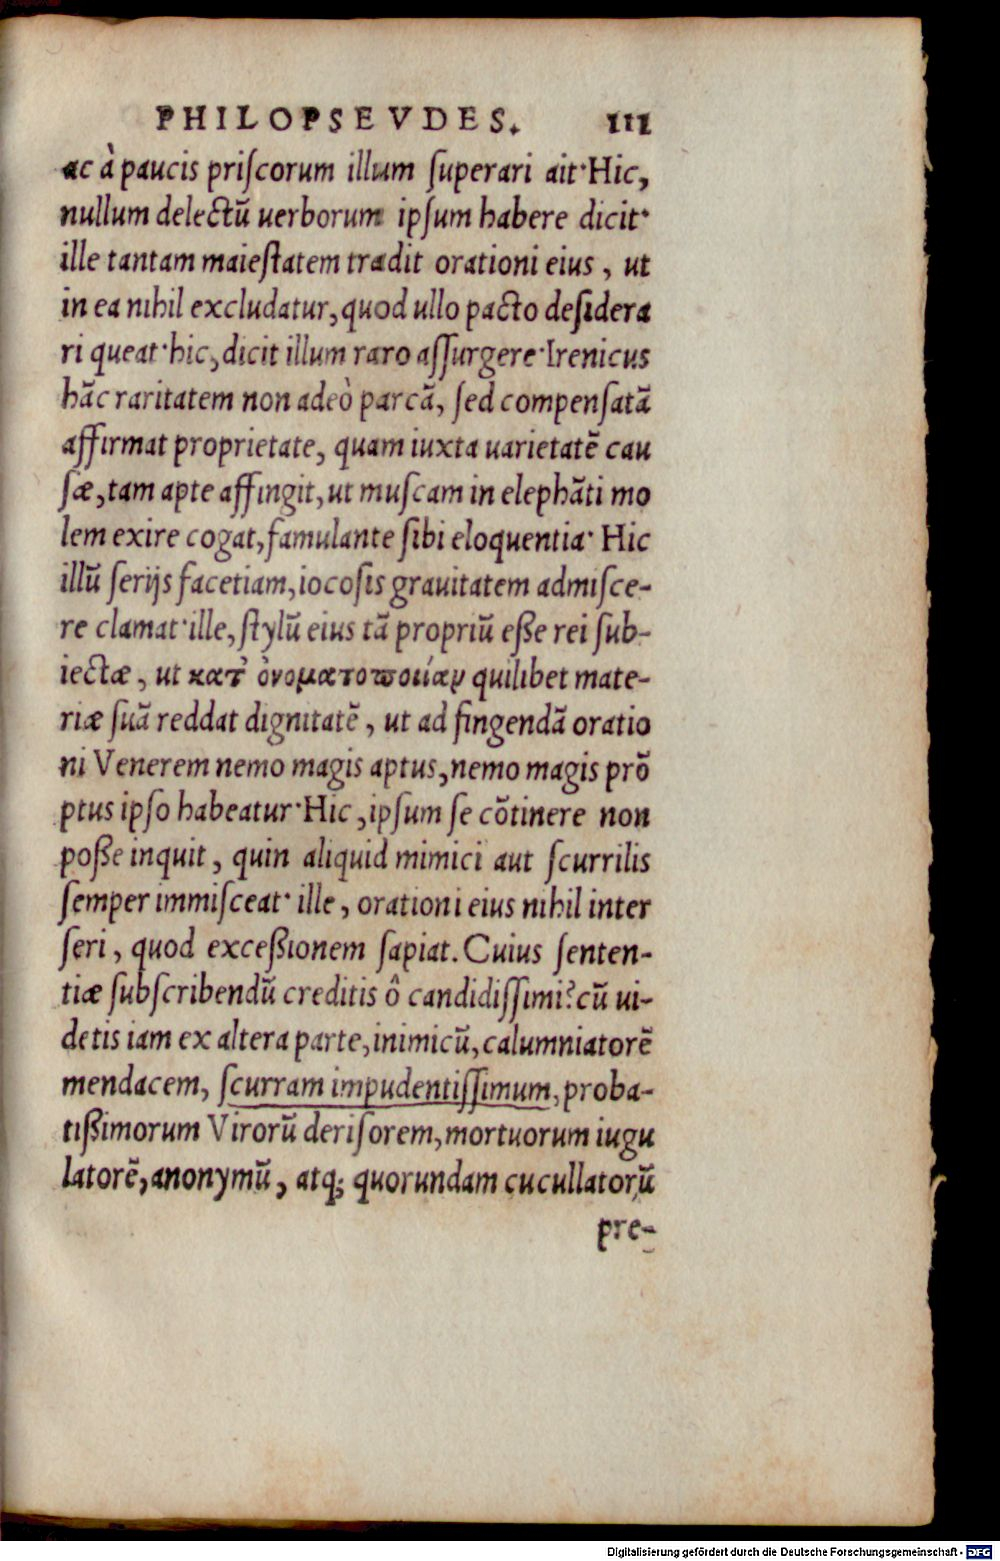 PHILOPSEVDES. 111
ac à paucis priſcorum illum ſuperari ait·Hic,
nullum delectū uerborum ipſum habere dicit·
ille tantam maieſtatem tradit orationi eius, ut
in ea nihil excludatur, quod ullo pacto deſidera
ri queat·hic, dicit illum raro aſſurgere·Irenicus
hāc raritatem non adeò parcā, ſed compenſatā
affirmat proprietate, quam iuxta uarietatē cau
ſæ, tam apte affingit, ut muſcam in elephāti mo
lem exire cogat, famulante ſibi eloquentia· Hic
illū ſerijs facetiam, iocoſis grauitatem admiſce-
re clamat·ille, ſtylū eius tā propriū eße rei ſub-
iectæ, ut κατ’ ὀνοματοποιίαν quilibet mate-
riæ ſuā reddat dignitatē, ut ad fingendā oratio
ni Venerem nemo magis aptus, nemo magis prō
ptus ipſo habeatur·Hic, ipſum ſe cōtinere non
poße inquit, quin aliquid mimici aut ſcurrilis
ſemper immiſceat· ille, orationi eius nihil inter
ſeri, quod exceßionem ſapiat. Cuius ſenten-
tiæ ſubſcribendū creditis ô candidiſſimi? cū ui-
detis iam ex altera parte, inimicū, calumniatorē
mendacem, ſcurram impudentiſſimum, proba-
tißimorum Virorū deriſorem, mortuorum iugu
latorē, anonymū, atq; quorundam cucullatorū
pre-
Digitalisierung gefördert durch die Deutsche Forschungsgemeinschaft - DFG